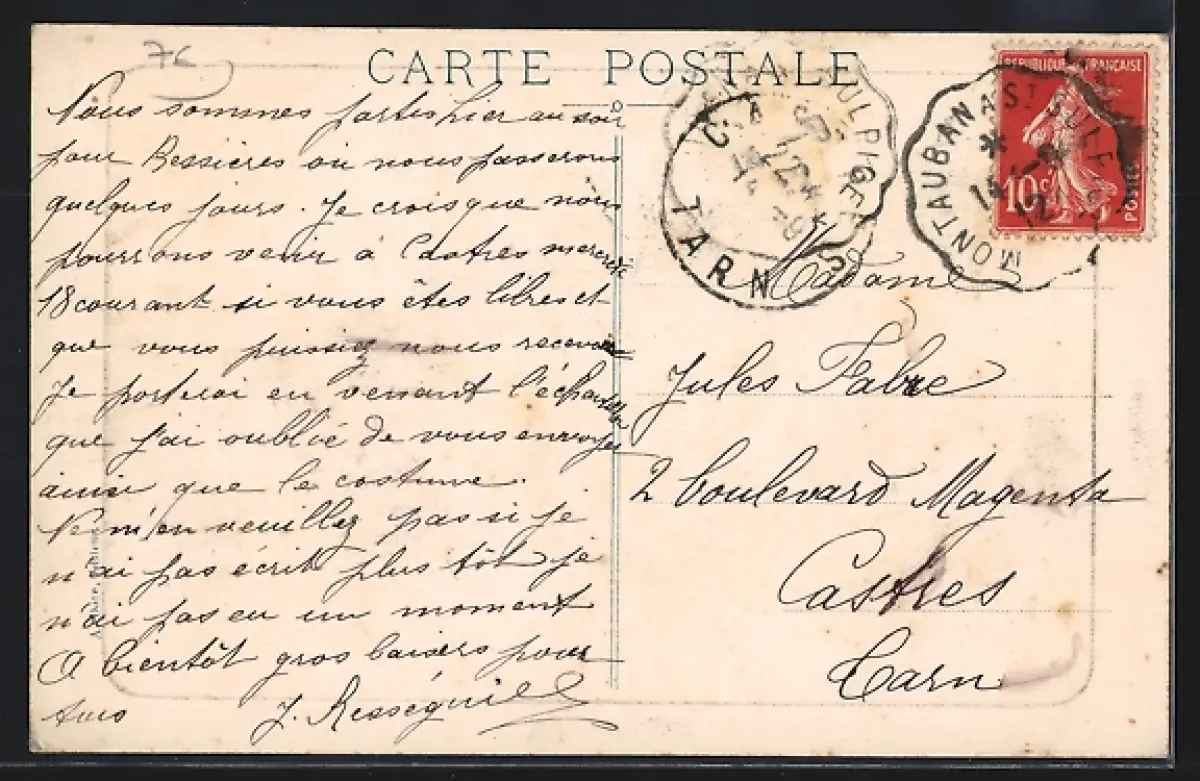 76
CARTE POSTALE
Nous sommes partis hier au soir
pour Bessières où nous passerons
quelques jours. Je crois que nous
pourrons venir à Castres mercredi
18 courant si vous êtes libres et
que vous puissiez nous recevoir
Je porterai en venant
que j'ai oublié de vous envoyer
ainsi que le costume.
Ne m'en veuillez pas si je
n'ai pas écrit plus tôt je
n'ai pas eu un moment
A bientôt gros baisers pour
tous J. Rességuié
Madame
Jules Fabre
2 boulevard Magenta
Castres
Tarn
REPUBLIQUE FRANÇAISE
10c
POSTES
MONTAUBAN A ST SULPICE
14
12
TARN